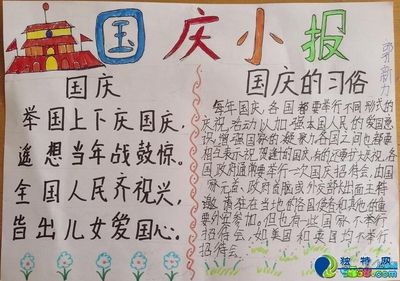 国庆小报
郭新力
国庆
举国上下庆国庆，
遥想当年战鼓惊。
全国人民齐祝兴，
皆出儿女爱国心。
国庆的习俗
每年国庆，各国都要举行不同形式的
庆祝活动，以加强本国人民的爱国意
识，增强国家的凝聚力。各国之间也都要
相互表示祝贺。逢五逢十的国庆，有的还要扩大庆祝。各
国政府通常要举行一次国庆招待会，由国
家元首、政府首脑或外交部长出面主持，
邀请驻在当地的各国使节和其他的重
要外宾参加。但也有一些国家不举行
招待会，如美国和英国均不举行
招待会。
独特网